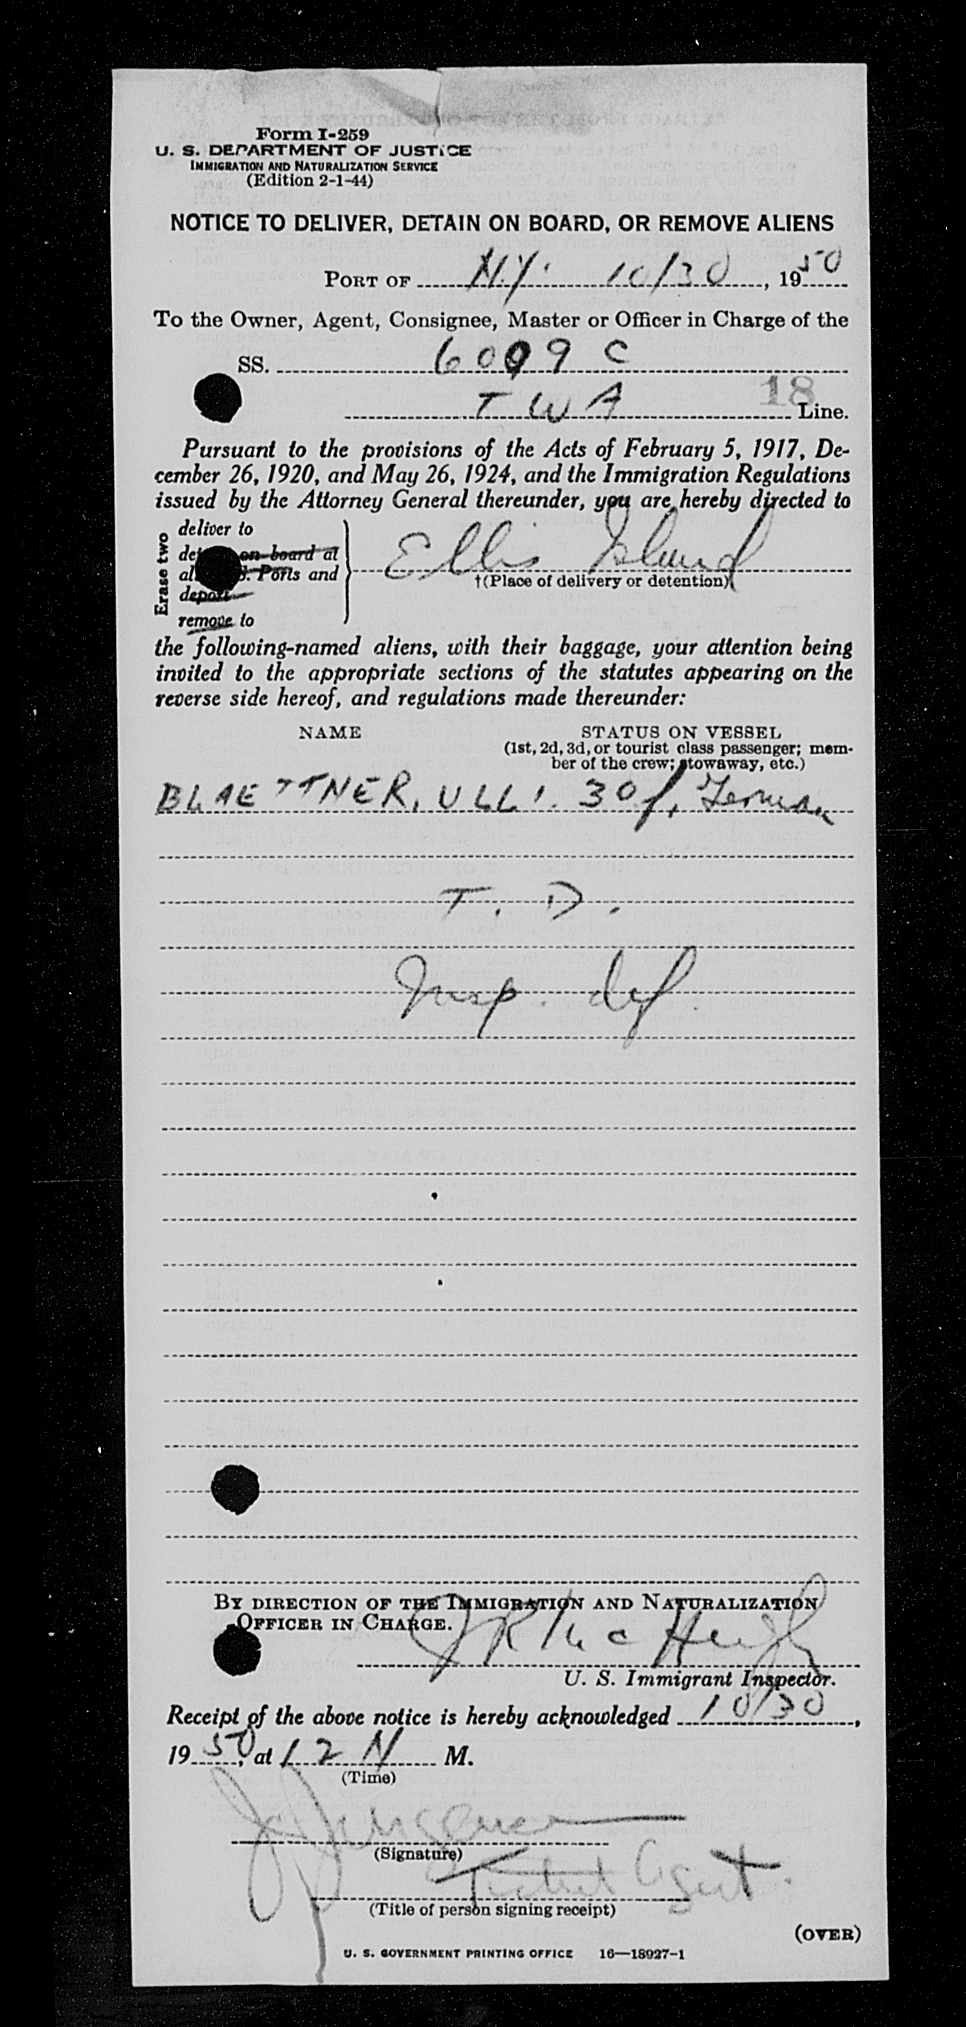 Form I-259
U. S. DEPARTMENT OF JUSTICE
IMMIGRATION AND NATURALIZATION SERVICE
(Edition 2-1-44)
NOTICE TO DELIVER, DETAIN ON BOARD, OR REMOVE ALIENS
PORT OF N.Y. 10/30, 1950
To the Owner, Agent, Consignee, Master or Officer in Charge of the
SS. 6009 C
18
TWA Line.
Pursuant to the provisions of the Acts of February 5, 1917, De-
cember 26, 1920, and May 26, 1924, and the Immigration Regulations
issued by the Attorney General thereunder, you are hereby directed to
Erase two
deliver to
on board at
Ports and
deport
remove to
Ellis Island
†(Place of delivery or detention)
the following-named aliens, with their baggage, your attention being
invited to the appropriate sections of the statutes appearing on the
reverse side hereof, and regulations made thereunder:
NAME STATUS ON VESSEL
(1st, 2d, 3d, or tourist class passenger; mem-
ber of the crew; stowaway, etc.)
BLAETTNER, ULLI. 30 f, German
T. D.
Insp. def.
BY DIRECTION OF THE IMMIGRATION AND NATURALIZATION
OFFICER IN CHARGE.
J R McHugh
U. S. Immigrant Inspector.
Receipt of the above notice is hereby acknowledged 10/30,
1950, at 12 N M.
(Time)
J Jurgensen
(Signature)
Ticket Agent.
(Title of person signing receipt)
(OVER)
U. S. GOVERNMENT PRINTING OFFICE 16—18927-1